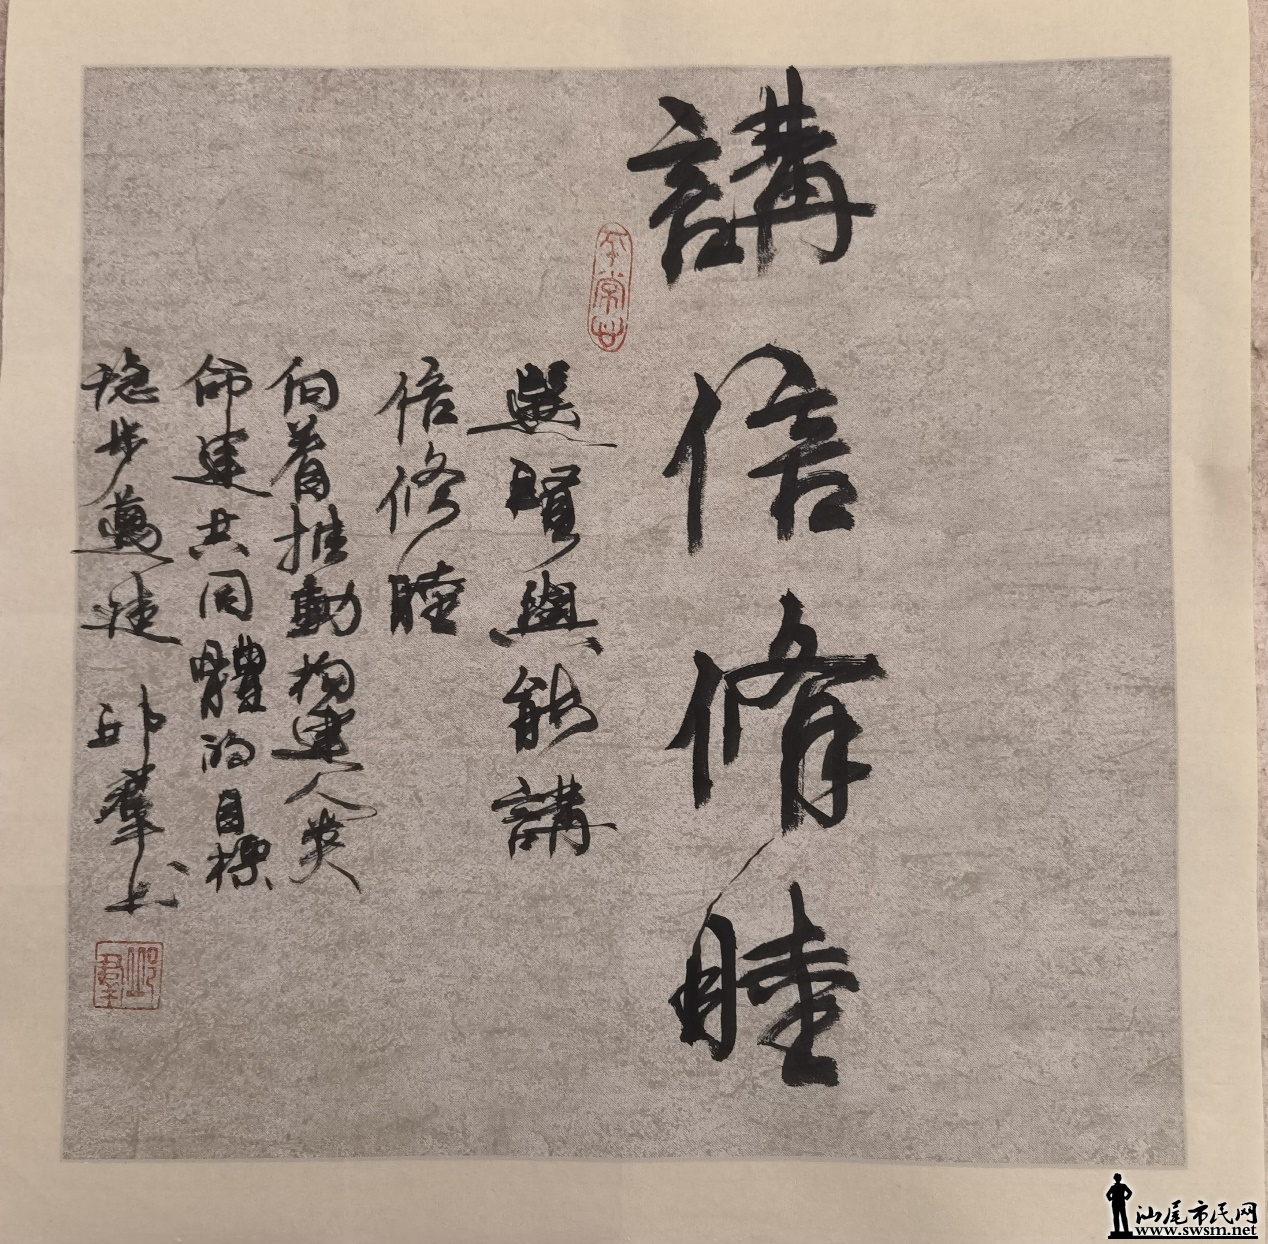 講信修睦
選賢與能講
信修睦
向着推動構建人类
命運共同體的目標
穩步邁進 邱羣书
邱羣
汕尾市民网
www.swsm.net